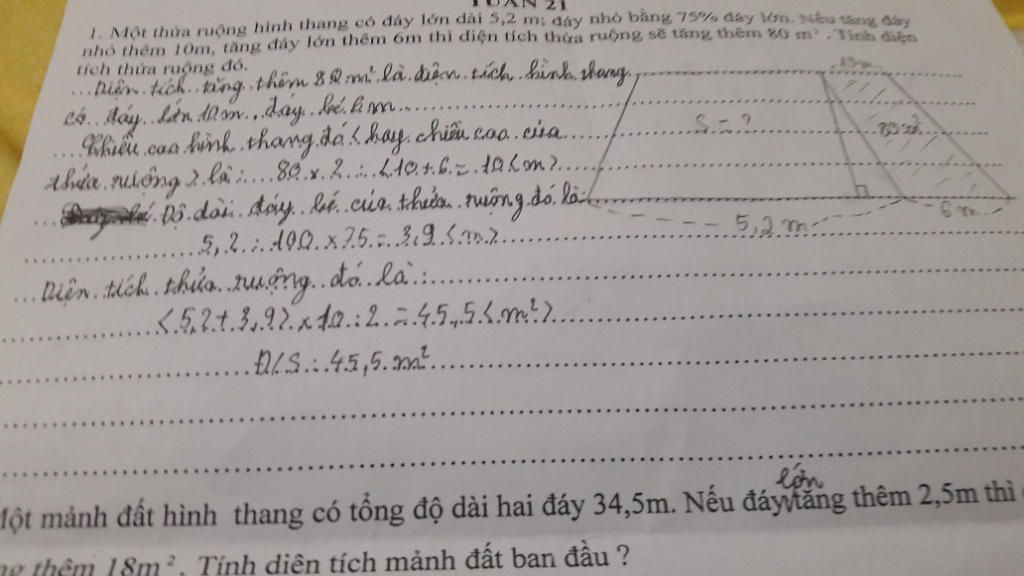 TUẦN 21
1. Một thửa ruộng hình thang có đáy lớn dài 5,2 m; đáy nhỏ bằng 75% đáy lớn. Nếu tăng đáy
nhỏ thêm 10m, tăng đáy lớn thêm 6m thì diện tích thửa ruộng sẽ tăng thêm 80 m². Tính diện
tích thửa ruộng đó.
Diện tích tăng thêm 80 m² là diện tích hình thang
có đáy lớn 10 m, đáy bé 6 m
Chiều cao hình thang đó (hay chiều cao của
thửa ruộng) là: 80 x 2 : (10 + 6 = 10 (m)
Độ dài đáy bé của thửa ruộng đó là:
5,2 : 100 x 75 = 3,9 (m)
Diện tích thửa ruộng đó là:
(5,2 + 3,9) x 10 : 2 = 45,5 (m²)
Đ/S: 45,5 m²
10m
S = ?
80m²
5,2 m
6 m
Một mảnh đất hình thang có tổng độ dài hai đáy 34,5m. Nếu đáy lớn tăng thêm 2,5m thì
thêm 18m². Tính diên tích mảnh đất ban đầu ?